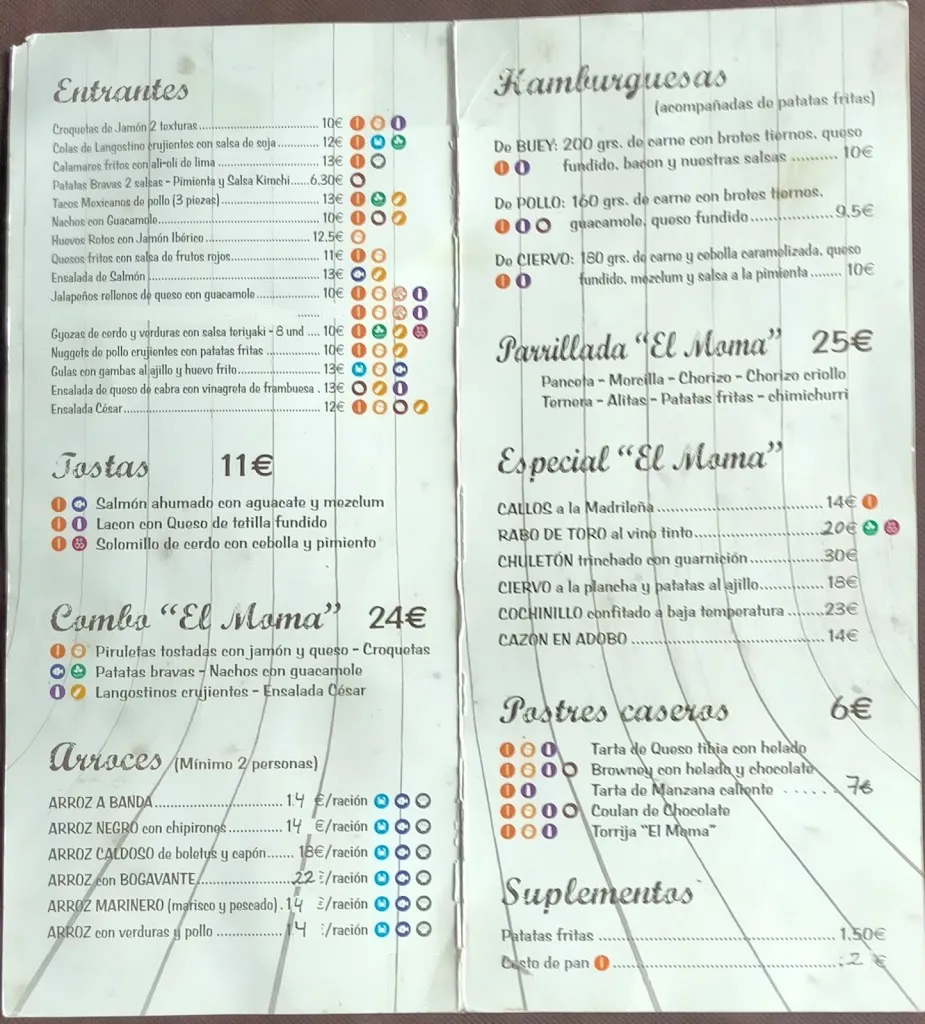 Entrantes
Croquetas de Jamón 2 texturas.......... 10€
Colas de Langostino crujientes con salsa de soja.......... 12€
Calamares fritos con ali-oli de lima.......... 13€
Patatas Bravas 2 salsas - Pimienta y Salsa Kimchi..... 6.30€
Tacos Mexicanos de pollo (3 piezas).......... 13€
Nachos con Guacamole.......... 10€
Huevos Rotos con Jamón Ibérico.......... 12.5€
Quesos fritos con salsa de frutos rojos.......... 11€
Ensalada de Salmón.......... 13€
Jalapeños rellenos de queso con guacamole.......... 10€
.......
Gyozas de cerdo y verduras con salsa teriyaki - 8 und .... 10€
Nuggets de pollo crujientes con patatas fritas .......... 10€
Gulas con gambas al ajillo y huevo frito.......... 13€
Ensalada de queso de cabra con vinagreta de frambuesa . 13€
Ensalada César.......... 12€
Tostas 11€
Salmón ahumado con aguacate y mezclum
Lacon con Queso de tetilla fundido
Solomillo de cerdo con cebolla y pimiento
Combo "El Moma" 24€
Piruletas tostadas con jamón y queso - Croquetas
Patatas bravas - Nachos con guacamole
Langostinos crujientes - Ensalada César
Arroces (Mínimo 2 personas)
ARROZ A BANDA.......... 14 €/ración
ARROZ NEGRO con chipirones.......... 14 €/ración
ARROZ CALDOSO de boletus y capón....... 18€/ración
ARROZ con BOGAVANTE.......... 22 €/ración
ARROZ MARINERO (marisco y pescado). 14 €/ración
ARROZ con verduras y pollo .......... 14 /ración
Hamburguesas
(acompañadas de patatas fritas)
De BUEY: 200 grs. de carne con brotes tiernos, queso
fundido, bacon y nuestras salsas .......... 10€
De POLLO: 160 grs. de carne con brotes tiernos,
guacamole, queso fundido .......... 9.5€
De CIERVO: 180 grs. de carne y cebolla caramelizada, queso
fundido, mezclum y salsa a la pimienta ........ 10€
Parrillada "El Moma" 25€
Panceta - Morcilla - Chorizo - Chorizo criollo
Ternera - Alitas - Patatas fritas - chimichurri
Especial "El Moma"
CALLOS a la Madrileña.......... 14€
RABO DE TORO al vino tinto.......... 20€
CHULETÓN trinchado con guarnición.......... 30€
CIERVO a la plancha y patatas al ajillo.......... 18€
COCHINILLO confitado a baja temperatura ....... 23€
CAZÓN EN ADOBO .......... 14€
Postres caseros 6€
Tarta de Queso tibia con helado
Browney con helado y chocolate
Tarta de Manzana caliente ...... 7€
Coulan de Chocolate
Torrija "El Moma"
Suplementos
Patatas fritas .......... 1.50€
Cesto de pan .......... 2 €